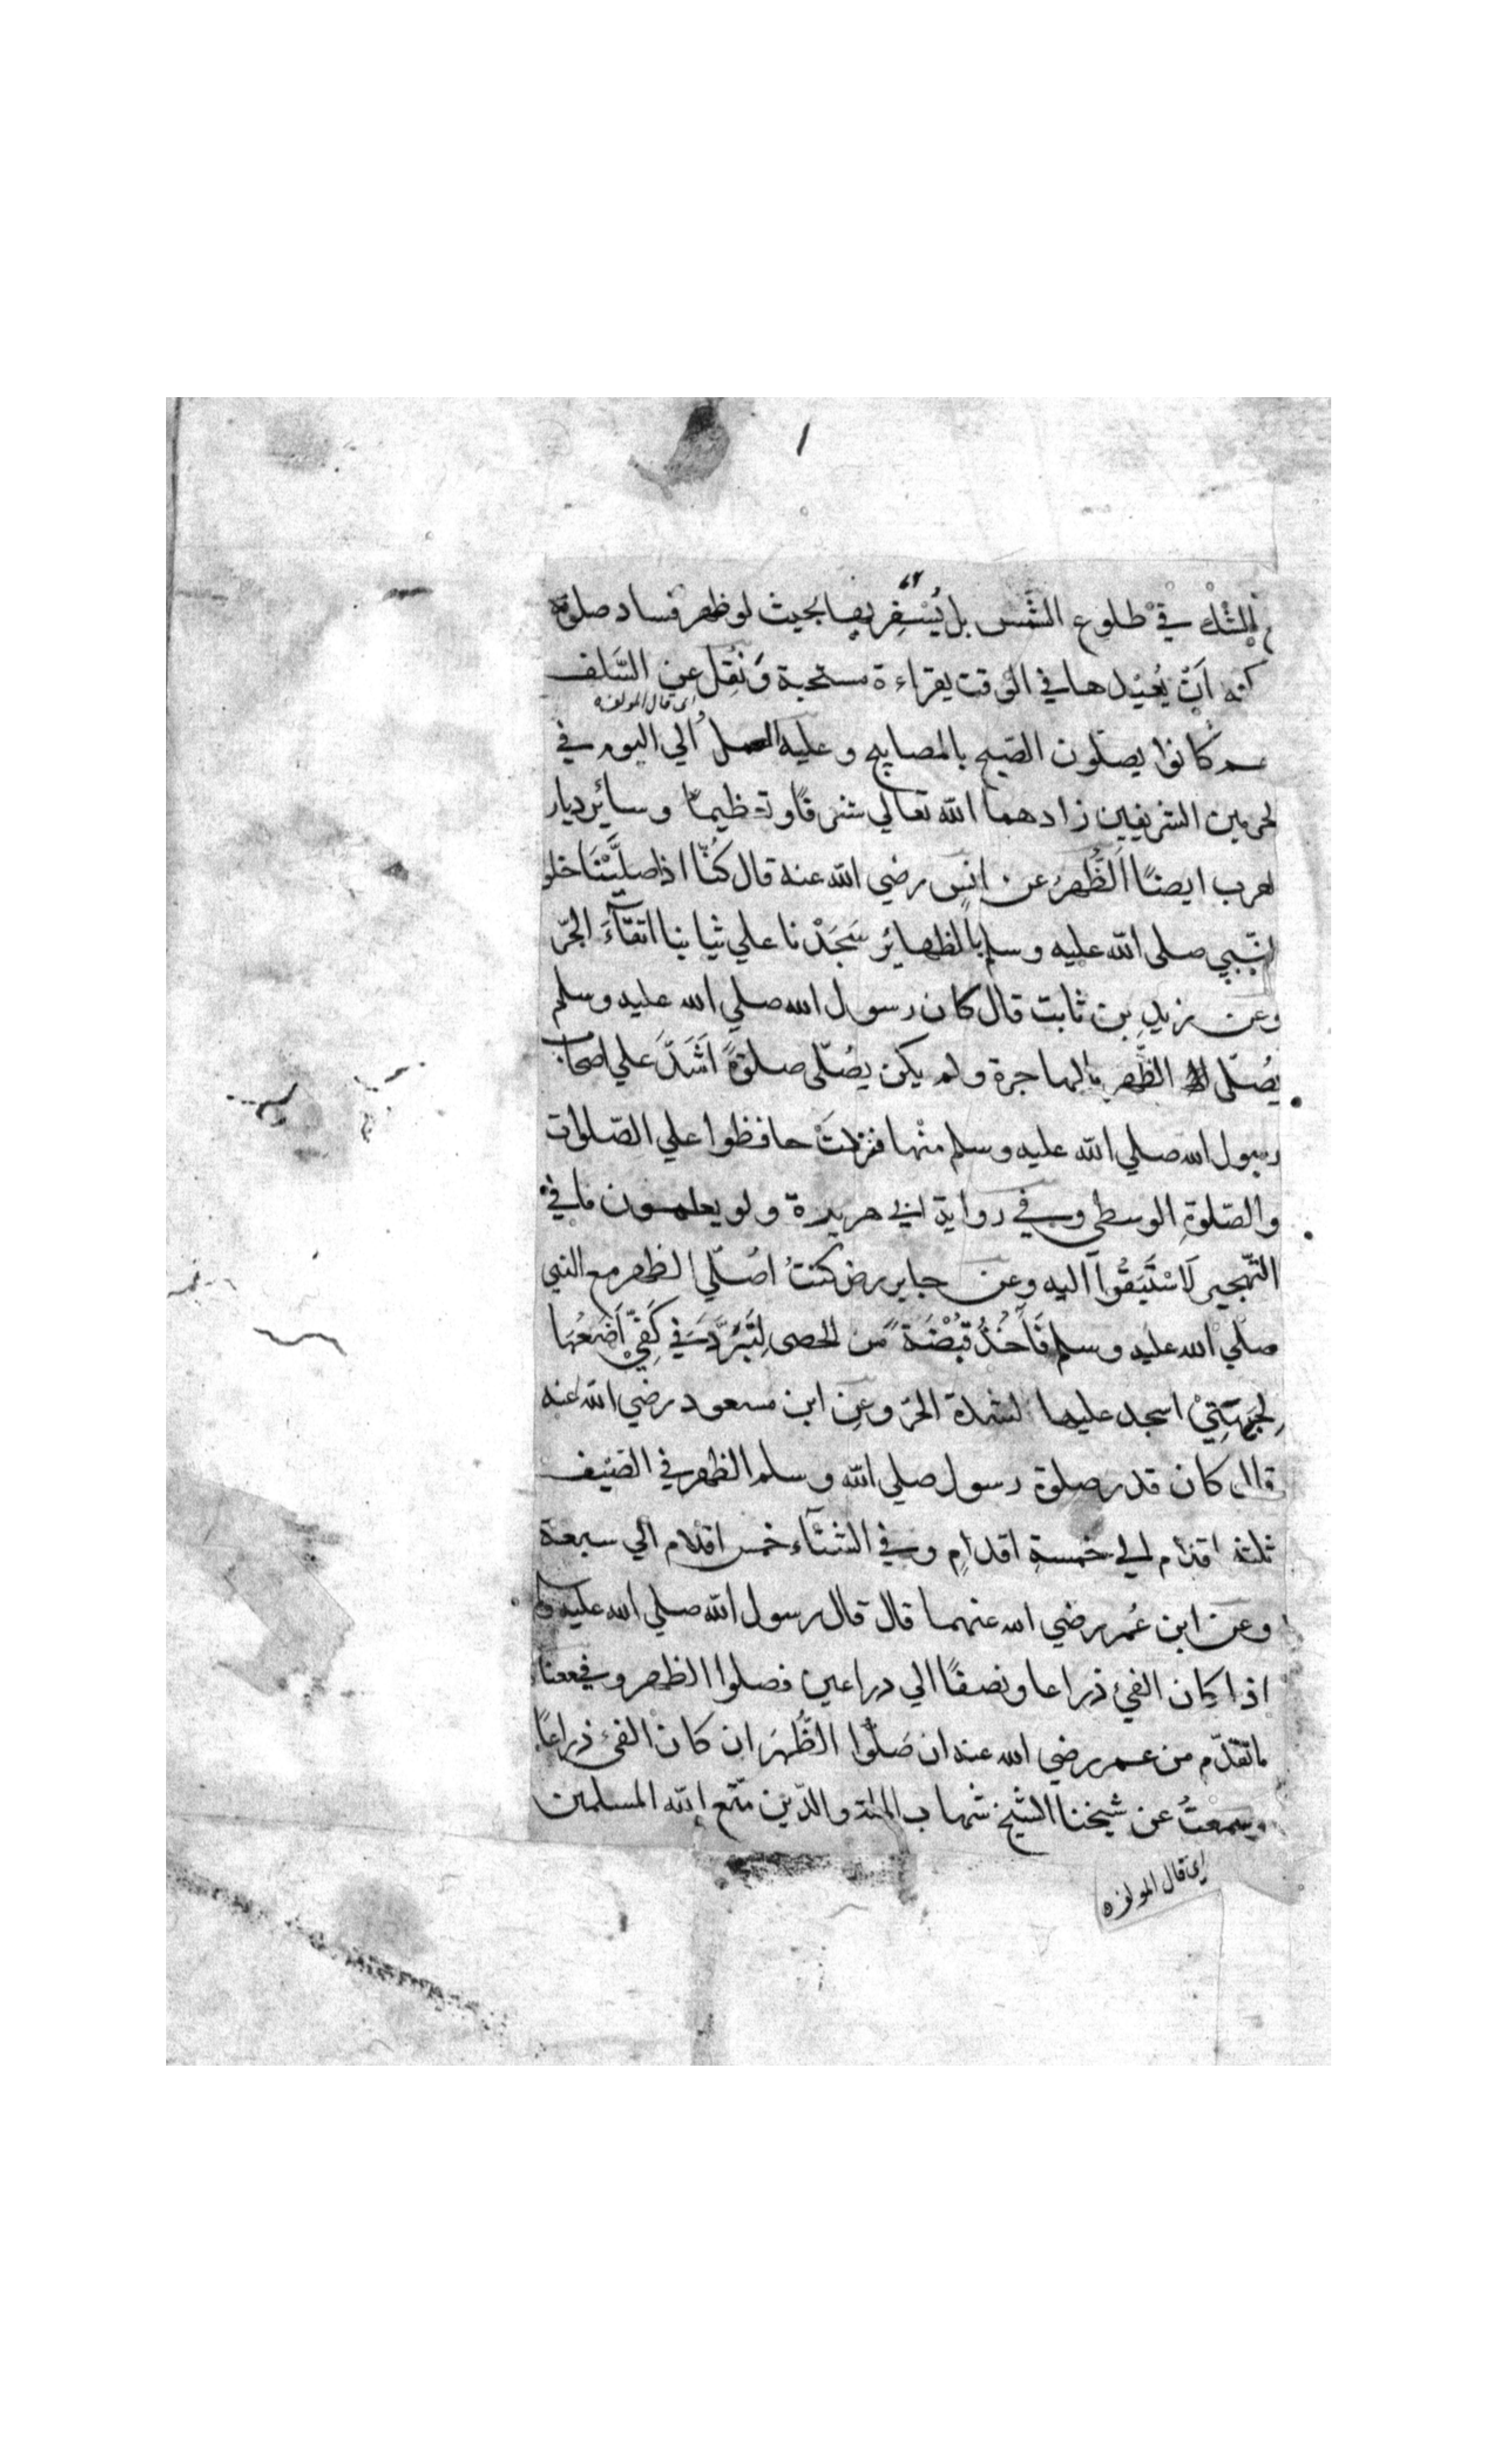 الشك في طلوع الشمس بل يُسْفِر بها بحيث لو ظهر فساد صلوته
كنه ان يُعيْدها في الوقت بقراءة مستحبة وَنُقِل عن السَّلف
اى قال المولف
كانوا يصلّون الصّبح بالمصابيح وعليه العمل الي اليوم في
لحرمين الشريفين زادهما الله تعالي شرفًا وتعظيمًا وسائر ديار
لعرب ايضًا الظُّهر عن انس رضي الله عنه قال كُنّا اذا صليَّنَا خلو
لنّبي صلى الله عليه وسلم بالظهائر سَجَدْنا علي ثيابنا اتقاَءَ الحَرّ
وعن زيدِ بن ثابت قال كان رسول الله صلي الله عليه وسلم
يُصَلّى الظّهر بالهاجرة ولم يكن يُصَلّى صلوةً اَشَدَّ علي اصحاب
رسول الله صلي الله عليه وسلم منْها فنزلتْ حافظوا علي الصّلوات
والصّلوةِ الوسطى وفي رواية ابي هريرة ولو يعلمون ما في
التّهجير لَاسْتَبَقُوا اليه وعن جابر رض كنتُ اُصَلّي الظهر مع النبي
صلي الله عليه وسلم فَآخُذُ قبْضَةً من الحصى لِتَبْرُدَ في كَفِّي اَضَعُهَا
لِجَبْهَتِيْ اسجد عليها لشدة الحرّ وعنِ ابن مسعود رضي الله عنه
قال كان قدر صلوة رسول صلي الله وسلم الظهر في الصّيف
ثلثة اقدام الي خمسةِ اقدامٍ وفي الشتاَء خمس اقدام الي سبعة
وعن ابن عُمر رضي الله عنهما قال قال رسول الله صلي الله عليه
اذا كان الفئ ذراعا ونصفًا الي دراعين فصلوا الظهر وفي معناه
ما تقدّم من عمر رضي الله عنه ان صَلّوا الظُّهرَ ان كان الفئ ذراعًا
وسمعتُ عن شيخنا الشيخ شهاب الملة والدّين متّع الله المسلمين
اى قال المولف